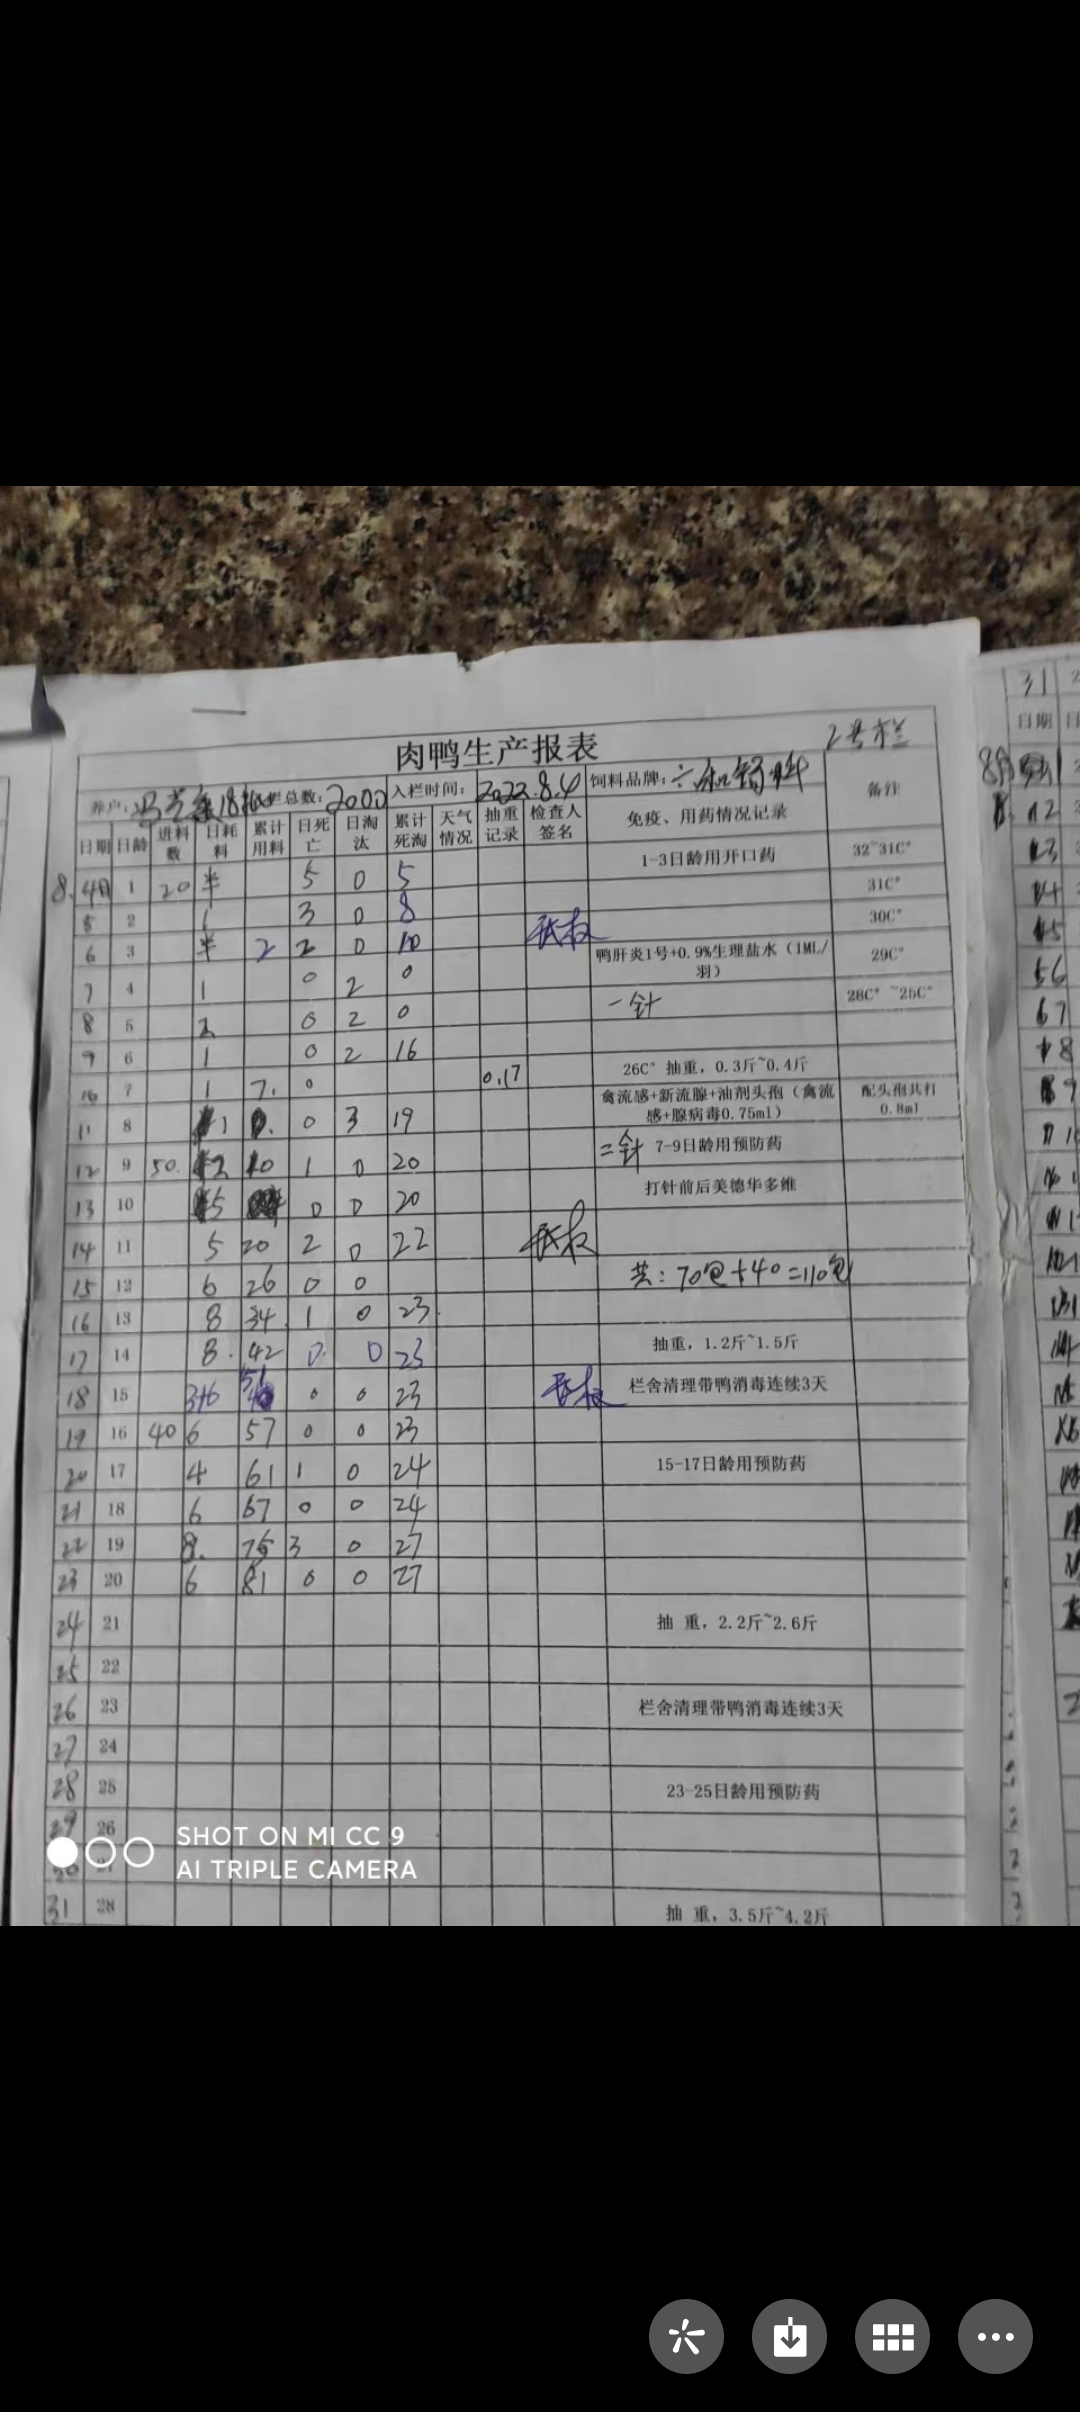 肉鸭生产报表 2号栏
养户: 18批 栏总数: 2000 入栏时间: 2022.8.4 饲料品牌: 六和饲料 备注
日期 日龄 进料数 日耗料 累计用料 日死亡 日淘汰 累计死淘 天气情况 抽重记录 检查人签名 免疫、用药情况记录
8.4日 1 20 半 5 0 5 1-3日龄用开口药 32~31C°
5 2 1 3 0 8 31C°
6 3 半 2 2 0 10 30C°
7 4 1 0 2 0 鸭肝炎1号+0.9%生理盐水（1ML/羽） 29C°
8 5 2 0 2 0 一针 28C°~25C°
9 6 1 0 2 16
10 7 1 7. 0 0.17 26C°抽重，0.3斤~0.4斤
11 8 1 0 3 19 禽流感+新流腺+油剂头孢（禽流感+腺病毒0.75ml） 配头孢共打0.8ml
12 9 50. 2 10 1 0 20 二针 7-9日龄用预防药
13 10 5 0 0 20 打针前后美德华多维
14 11 5 20 2 0 22
15 12 6 26 0 0 共: 70包+40=110包
16 13 8 34 1 0 23.
17 14 8. 42 0. 0 23 抽重，1.2斤~1.5斤
18 15 3+6 51 0 0 23 栏舍清理带鸭消毒连续3天
19 16 40 6 57 0 0 23
20 17 4 61 1 0 24 15-17日龄用预防药
21 18 6 67 0 0 24
22 19 8. 75 3 0 27
23 20 6 81 0 0 27
24 21 抽 重，2.2斤~2.6斤
25 22
26 23 栏舍清理带鸭消毒连续3天
27 24
28 25 23-25日龄用预防药
29 26
30 27
31 28 抽 重，3.5斤~4.2斤
SHOT ON MI CC 9
AI TRIPLE CAMERA